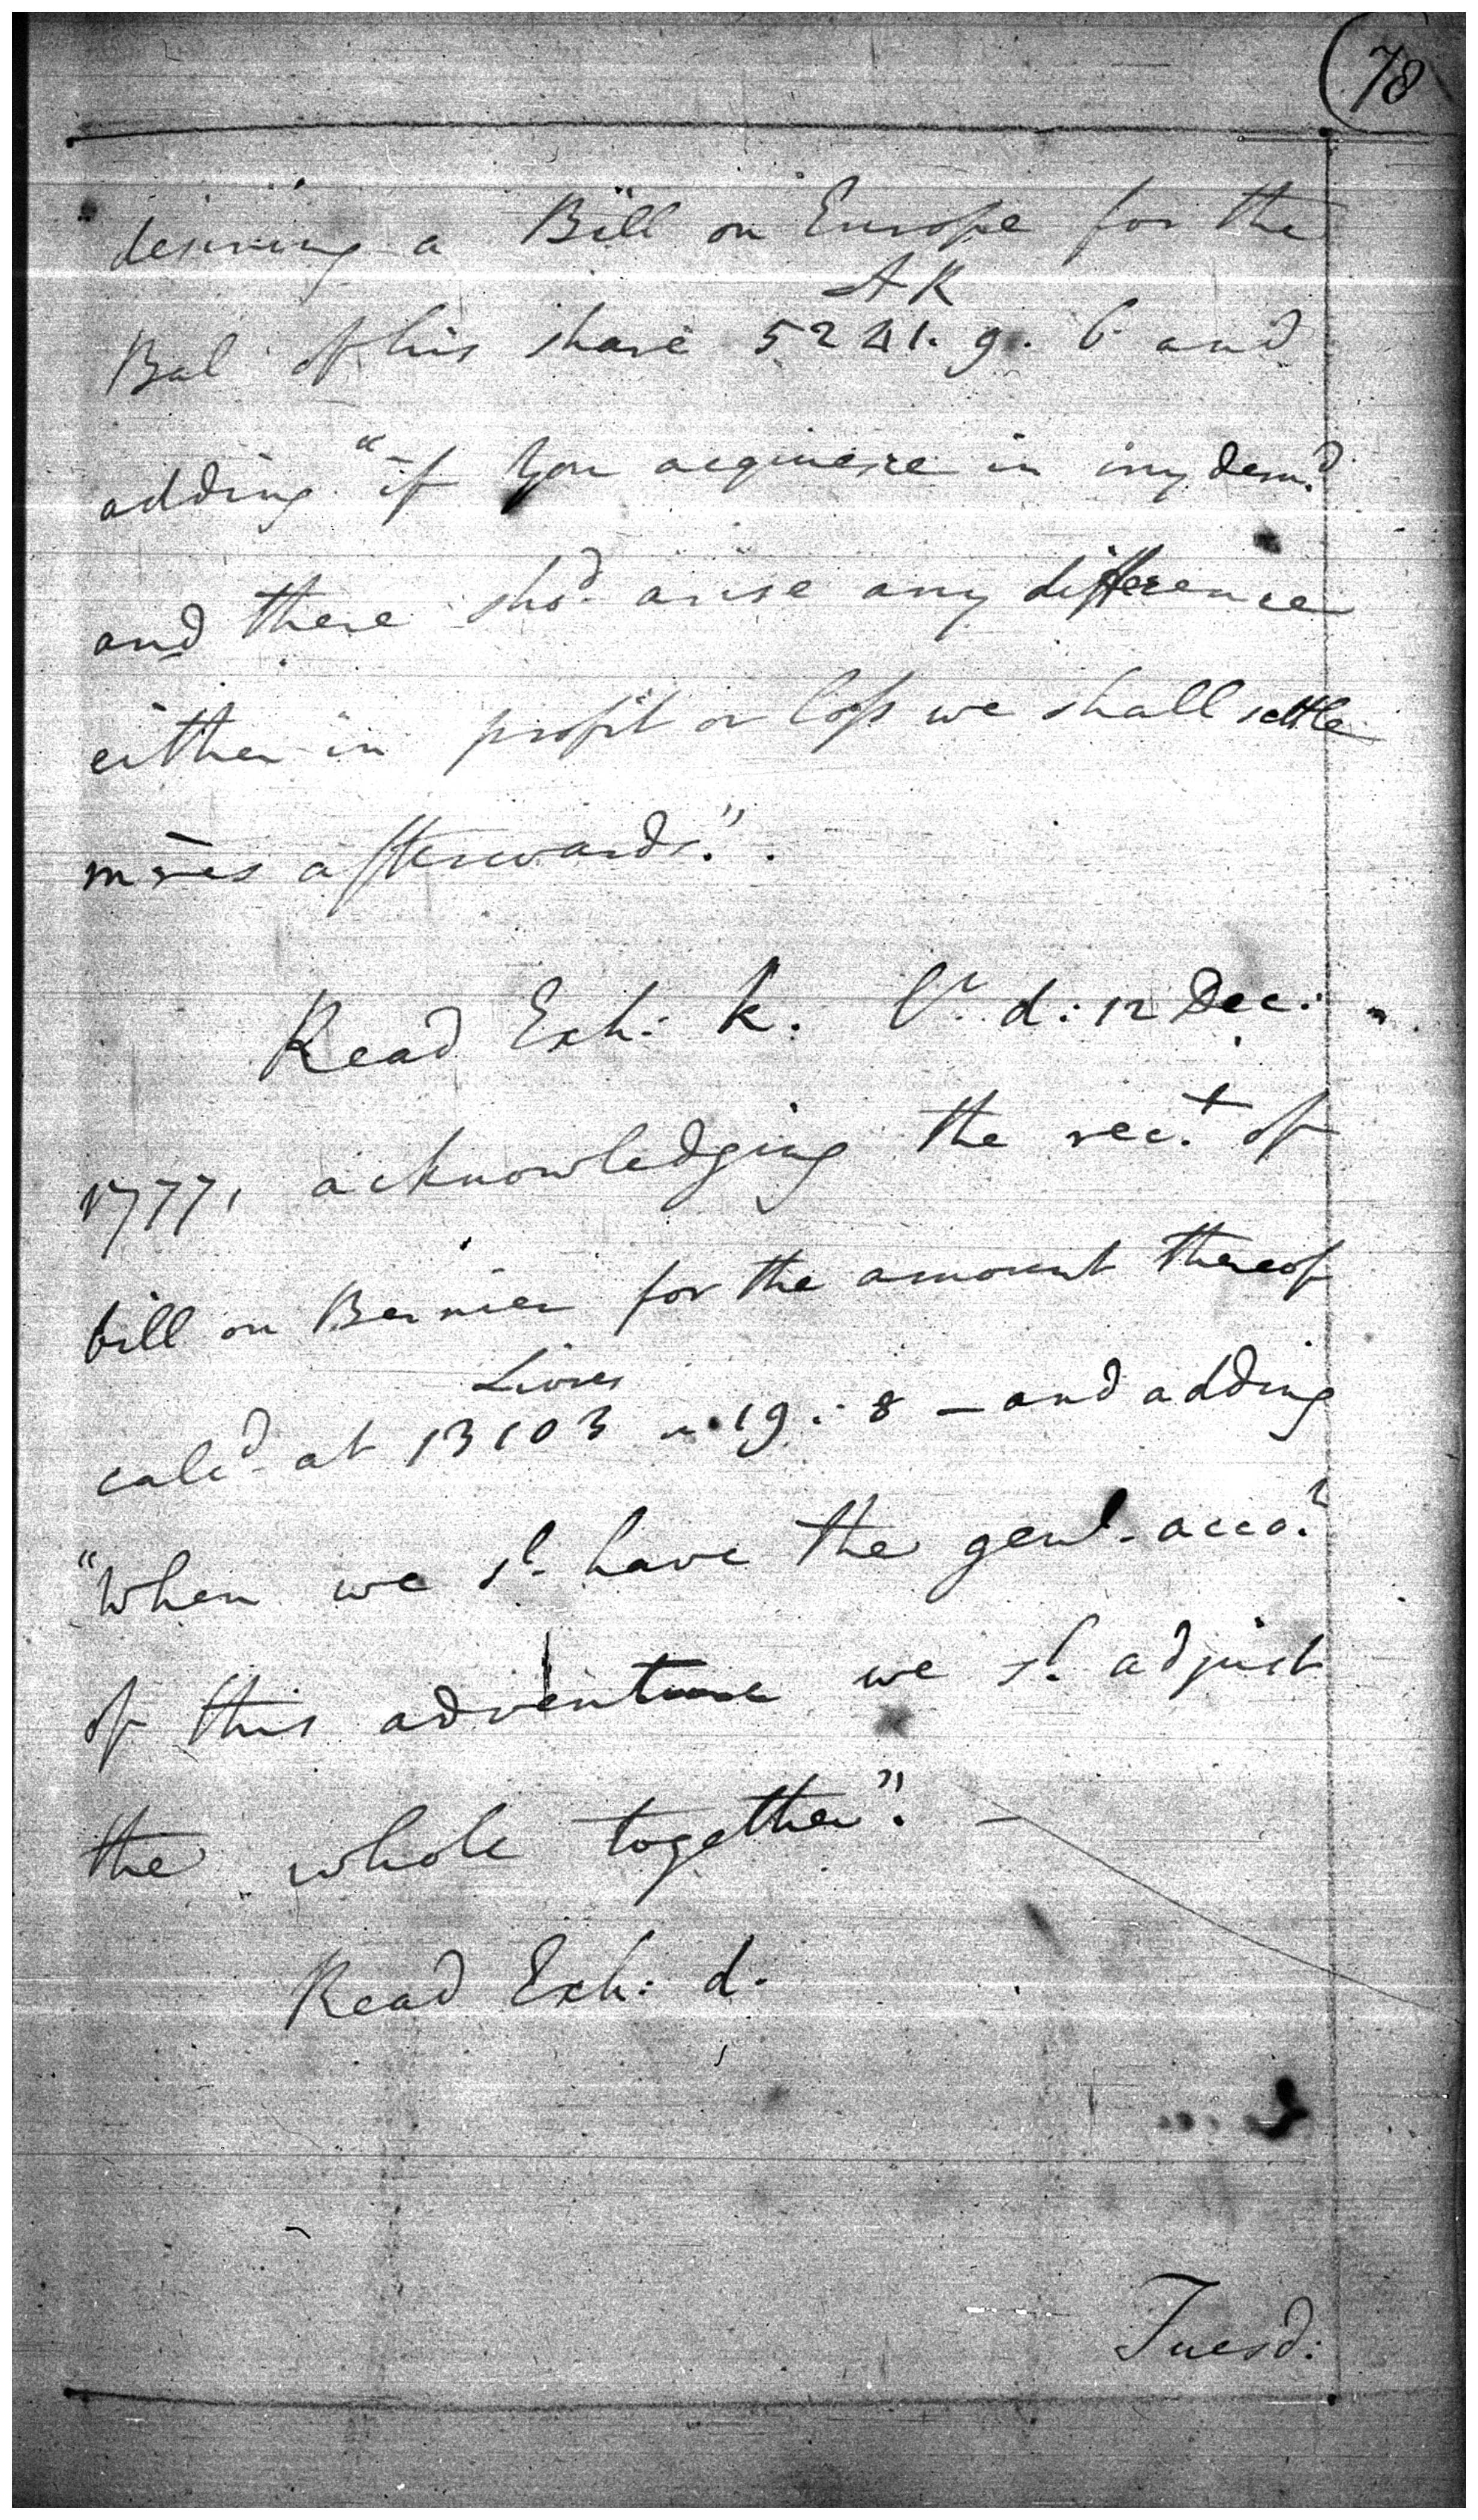 78
desiring a Bill on Europe for the
AR
Bal of his share 5241. 9. 6 and
adding "if You acquiesce in my dem.d
and there sho.d arise any difference
either in profit or loss we shall settle
m̅res afterwards."
Read Exh: k. l.r d: 12 Dec:
1777, acknowledging the rec.t of
bill on Bernier for the amount thereof
Livres
calc.d at 13103 " 19 : 8 — and adding
"When we sl. have the genl. acco.t
of this adventure we sl. adjust
the whole together". —
Read Exh: d.
Tuesd: